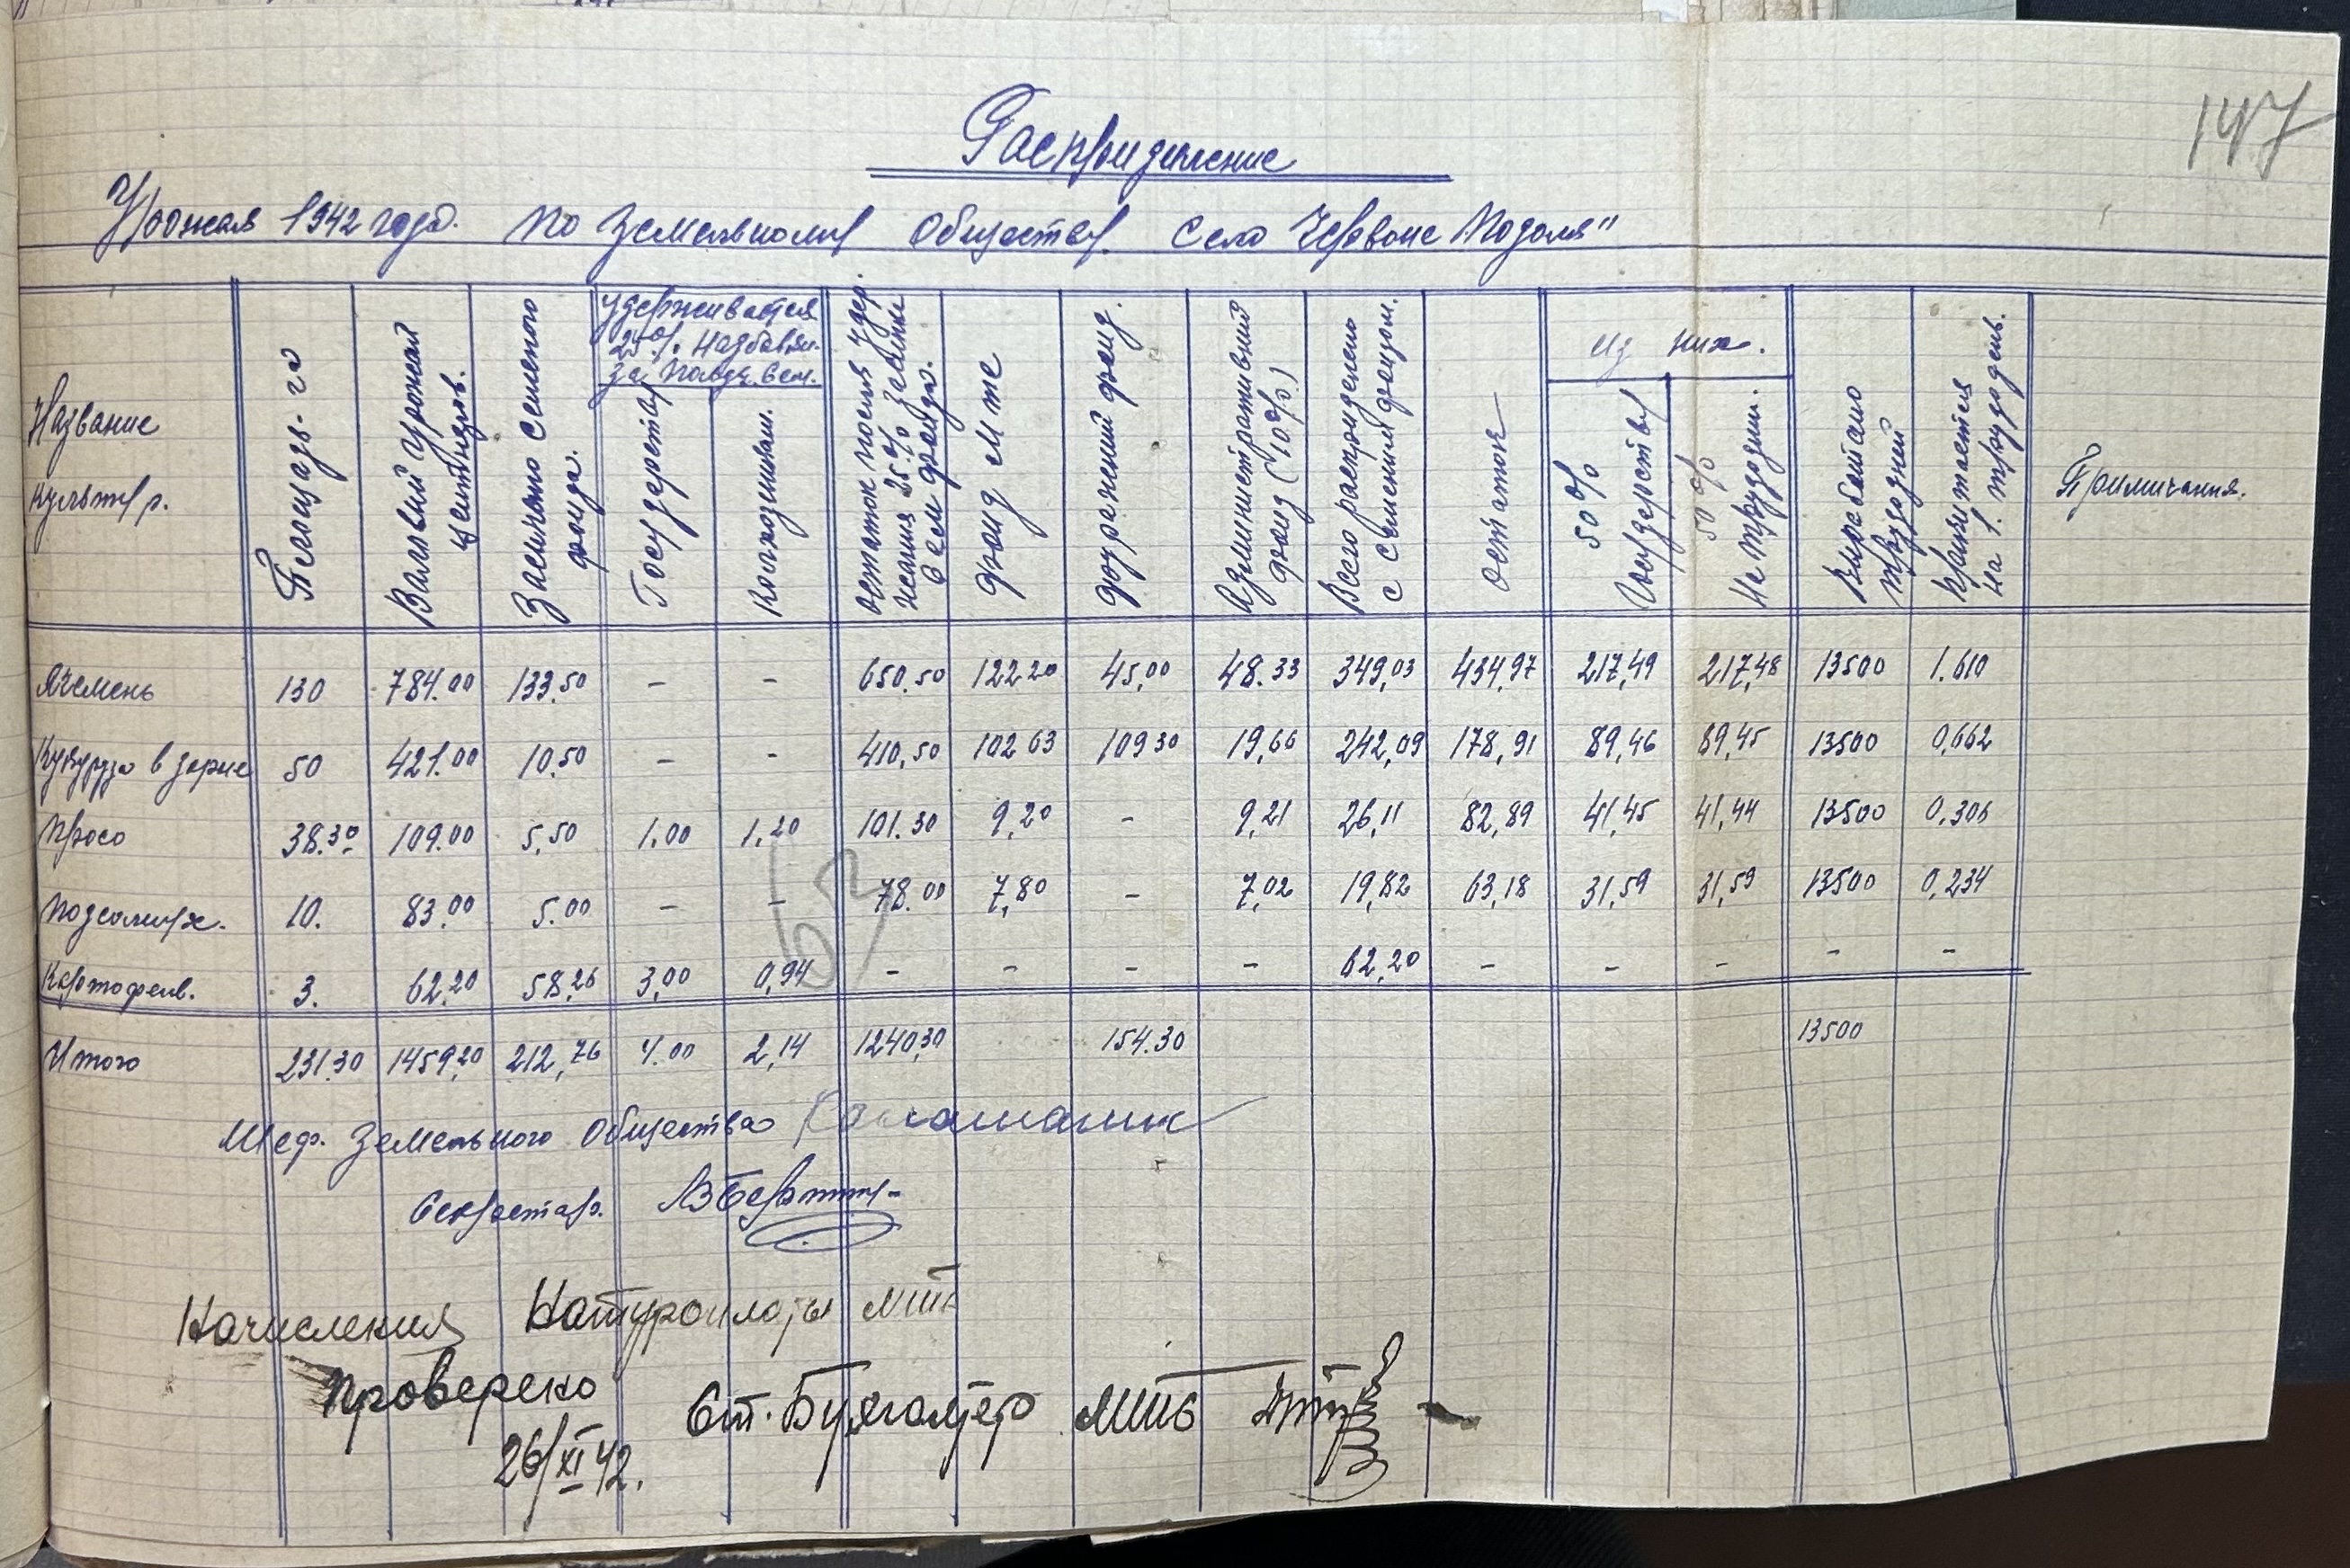 147
Распридиление
Урожая 1942 года. по Земельному Обществу. Село Червоне Подоля"
Название культур.
Площадь-га
Валовый урожай центнеров.
Засыпано семеного фонда.
удерживается 25% Надбавки за
Государству
Колхозникам.
остаток после удержания 25% засыпки сем фонда.
Фонд МТС
Фуражений фонд.
Административний фонд (10%)
Всего распридилено с семеним фондом.
остаток
из них.
50% Государству
50% На трудодни.
Выработано трудодней
причитается на 1. трудодень.
Примичания.
Ячмень 130 784.00 133.50 – – 650.50 122.20 45,00 48.33 349,03 434,97 217,49 217,48 13500 1.610
Кукурудза в зерне 50 421.00 10.50 – – 410,50 102 63 109 30 19,66 242,09 178,91 89,46 89,45 13500 0,662
Просо 38.30 109.00 5.50 1.00 1.20 101.30 9,20 – 9,21 26,11 82,89 41,45 41,44 13500 0,306
Подсолнух. 10. 83.00 5.00 – – 78.00 7,80 – 7,02 19,82 63,18 31,59 31,59 13500 0,234
Картофель. 3. 62.20 58,26 3,00 0,94 – – – – 62,20 – – – – –
Итого 231.30 1459,20 212,76 4.00 2,14 1240,30 154.30 13500
Шеф. Земельного Общества
Секретар.
Начисления Натуроплаты МТС
Проверено Ст. Бухгалтер МТС
26/XI 42.